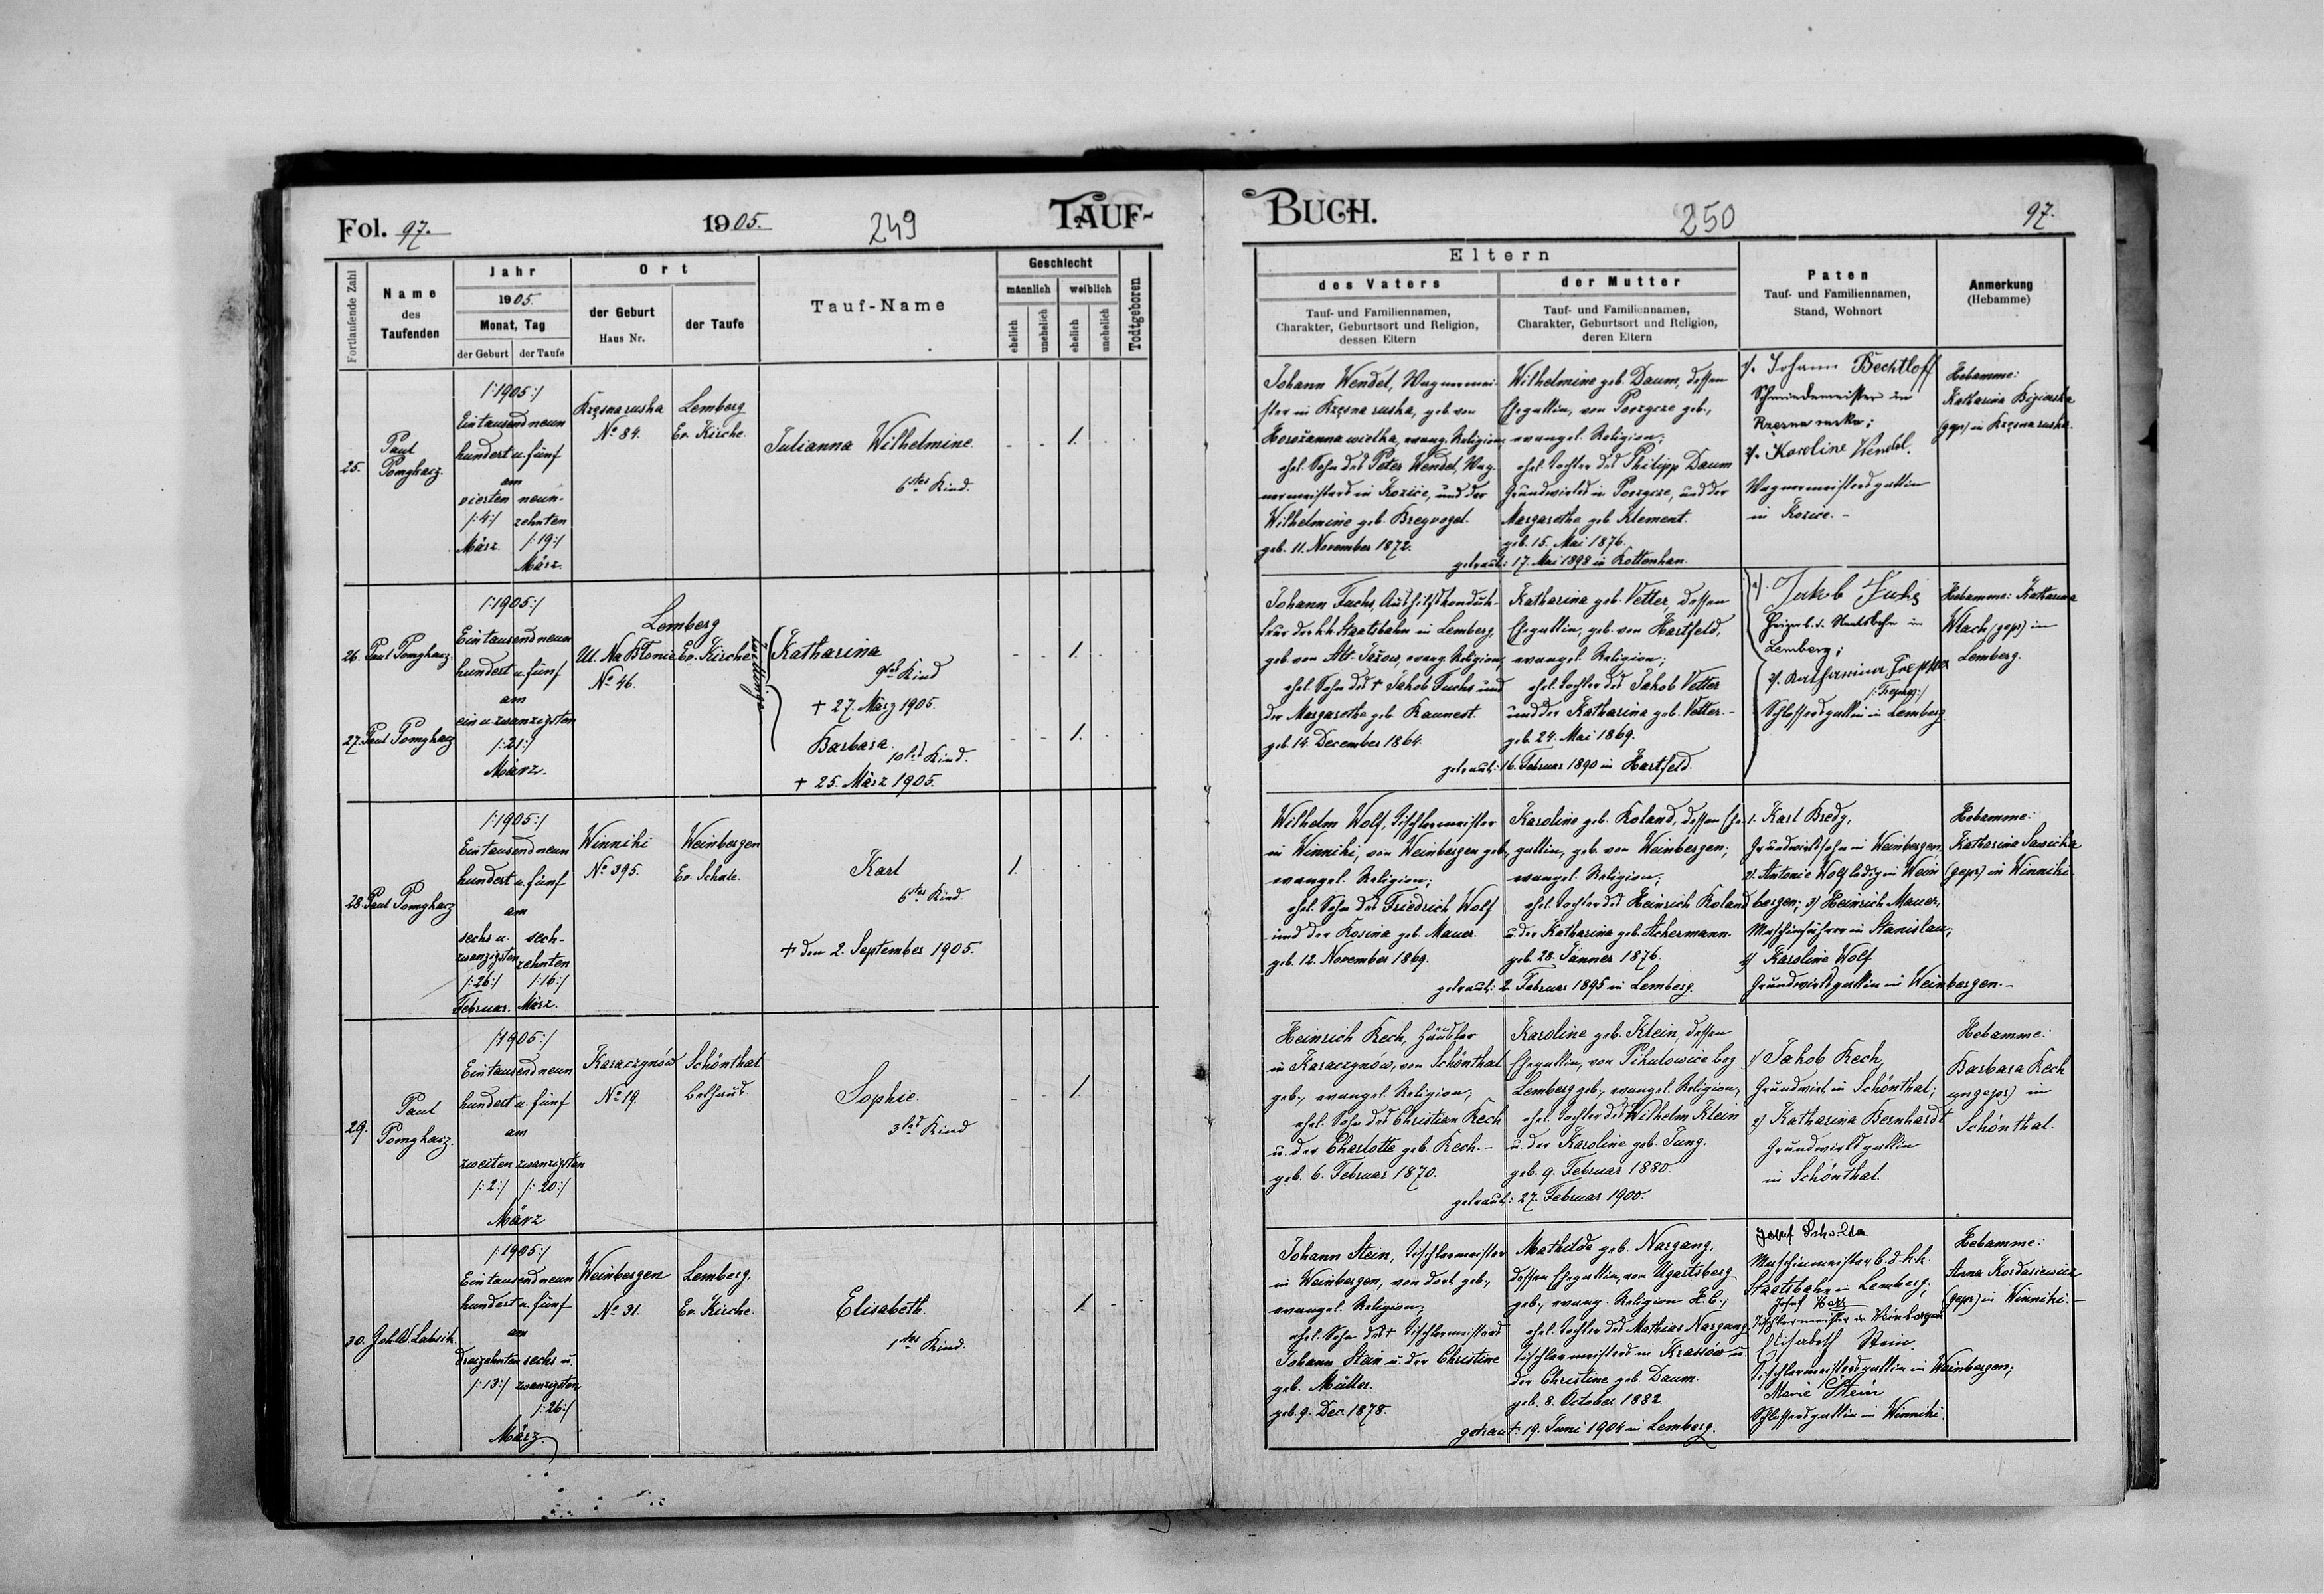 Fol. 97.
1905.
249
TAUF-
Fortlaufende Zahl
Name
des
Taufenden
Jahr
1905.
Monat, Tag
der Geburt
der Taufe
Ort
der Geburt
Haus Nr.
der Taufe
Tauf-Name
Geschlecht
männlich
weiblich
ehelich
unehelich
ehelich
unehelich
Todtgeboren
25.
Paul
Pomykacz.
/:1905:/
Eintausendneun
hundert u. fünf
am
vierten neun-
/:4:/ zehnten
März. /:19:/
März.
Krzęsna ruska
No 84.
Lemberg
Ev. Kirche.
Julianna Wilhelmine.
6tes Kind.
1.
26. Paul Pomykacz.
27. Paul Pomykacz
/:1905:/
Eintausendneun
hundert u. fünf
am
ein u. zwanzigsten
/:21:/
März.
Lemberg
Ul. Na Błonie
No 46.
Ev. Kirche
Zwillinge
Katharina
9tes Kind
+ 27. März 1905.
1.
Barbara.
10tes Kind.
+ 25. März 1905.
1.
28. Paul Pomykacz
/:1905:/
Eintausendneun
hundert u. fünf
am
sechs u. sech-
zwanzigsten zehnten
/:26:/ /:16:/
Februar. März.
Winniki
No 395.
Weinbergen
Ev. Schule.
Karl
6tes Kind.
+ den 2. September 1905.
1.
29.
Paul
Pomykacz.
/:1905:/
Eintausendneun
hundert u. fünf
am
zweiten zwanzigsten
/:2:/ /:20:/
März
Karaczynów
No 19.
Schönthal
Bethaus.
Sophie.
3tes Kind
1.
30.
/:1905:/
Eintausendneun
hundert u. fünf
am
dreizehnten sechs u.
/:13:/ zwanzigsten
/:26:/
März.
Weinbergen
No 31.
Lemberg.
Ev. Kirche.
Elisabeth.
1tes Kind.
1.
BUCH.
250
97.
Eltern
des Vaters
Tauf- und Familiennamen,
Charakter, Geburtsort und Religion,
dessen Eltern
der Mutter
Tauf- und Familiennamen,
Charakter, Geburtsort und Religion,
deren Eltern
Paten
Tauf- und Familiennamen,
Stand, Wohnort
Anmerkung
(Hebamme)
Johann Wendel, Wagnermei-
ster in Krzęsna ruska, geb. von
Horożanna wielka, evang. Religion;
ehel. Sohn des Peter Wendel, Wag-
nermeisters in Kozice, und der
Wilhelmine geb. Bregvogel.
geb. 11. November 1872.
Wilhelmine geb. Daum, dessen
Ehegattin, von Porzycze geb.,
evangel. Religion;
ehel. Tochter des Philipp Daum
Grundwirtes in Porzycze, und der
Margarethe geb. Klement.
geb. 15. Mai 1876.
getraut: 17. Mai 1898 in Rottenhan.
1/. Johann Bechtloff
Schmiedemeister in
Rzęsna ruska;
2/. Karoline Wendel.
Wagnermeistersgattin
in Kozice.-
Hebamme:
Katharina
(gepr) in Krzęsna ruska.
Johann Fuchs, Aushilfskonduk-
teur der k.k. Staatsbahn in Lemberg,
geb. von Alt-Jażow, evang. Religion;
ehel. Sohn des + Jakob Fuchs und
der Margarethe geb. Kaunest.
geb. 14. December 1864.
Katharina geb. Vetter, dessen
Ehegattin, geb. von Hartfeld,
evangel. Religion;
ehel. Tochter des Jakob Vetter
und der Katharina geb. Vetter.-
geb. 24. Mai 1869.
getraut: 16. Februar 1890 in Hartfeld.
1/. Jakob Fuchs
Heizer b. d. Staatsbahn in
Lemberg;
2/. Katharina
Schlossersgattin in Lemberg.
Hebamme: Katharina
Wlach (gepr) in
Lemberg.
Wilhelm Wolf, Tischlermeister
in Winniki, von Weinbergen geb.,
evangel. Religion;
ehel. Sohn des Friedrich Wolf
und der Rosina geb. Mauer.
geb. 12. November 1869.
Karoline geb. Roland, dessen Ehe-
gattin, geb. von Weinbergen;
evangel. Religion;
ehel. Tochter des Heinrich Roland
u. der Katharina geb. Ackermann.
geb. 28. Jänner 1876.
getraut: 2. Februar 1895 in Lemberg.
1. Karl Bredy,
Grundwirtssohn in Weinbergen,
2. Antonie Wolf ledig in Wein-
bergen; 3/ Heinrich Mauer,
Maschinführer in Stanislau;
4/ Karoline Wolf
Grundwirtsgattin in Weinbergen.-
Hebamme:
Katharina Sawicka
(gepr) in Winniki
Heinrich Kech, Häusler
in Karaczynów, von Schönthal
geb., evangel. Religion;
ehel. Sohn des Christian Kech
u. der Charlotte geb. Kech.-
geb. 6. Februar 1870.
Karoline geb. Klein, dessen
Ehegattin, von Pikulowice bez.
Lemberg geb., evangel. Religion;
ehel. Tochter des Wilhelm Klein
u. der Karoline geb. Jung.
geb. 9. Februar 1880.
getraut: 27. Februar 1900.
1/ Jakob Kech,
Grundwirt in Schönthal;
2/ Katharina Bernhardt
Grundwirtsgattin
in Schönthal.
Hebamme:
Barbara Kech
ungepr) in
Schönthal.
Johann Stein, Tischlermeister
in Weinbergen, von dort geb.,
evangel. Religion;
ehel. Sohn des + Tischlermeisters
Johann Stein u. der Christine
geb. Müller.
geb. 9. Dec. 1878.
Mathilde geb. Nargang,
dessen Ehegattin, von Ugartsberg
geb., evang. Religion H. C.;
ehel. Tochter des Mathias Nargang
Tischlermeisters in Krassów u.
der Christine geb. Daum.
geb. 8. October 1882.
getraut: 19. Juni 1904 in Lemberg.
Josef
Maschinmeister b. d. k.k.
Staatsbahn in Lemberg;
Josef
Tischlermeister in Weinbergen
Elisabeth Stein
Tischlermeistersgattin in Weinbergen;
Marie Stein
Schlossersgattin in Winniki.
Hebamme:
Anna Kordasiewicz
(gepr) in Winniki.-